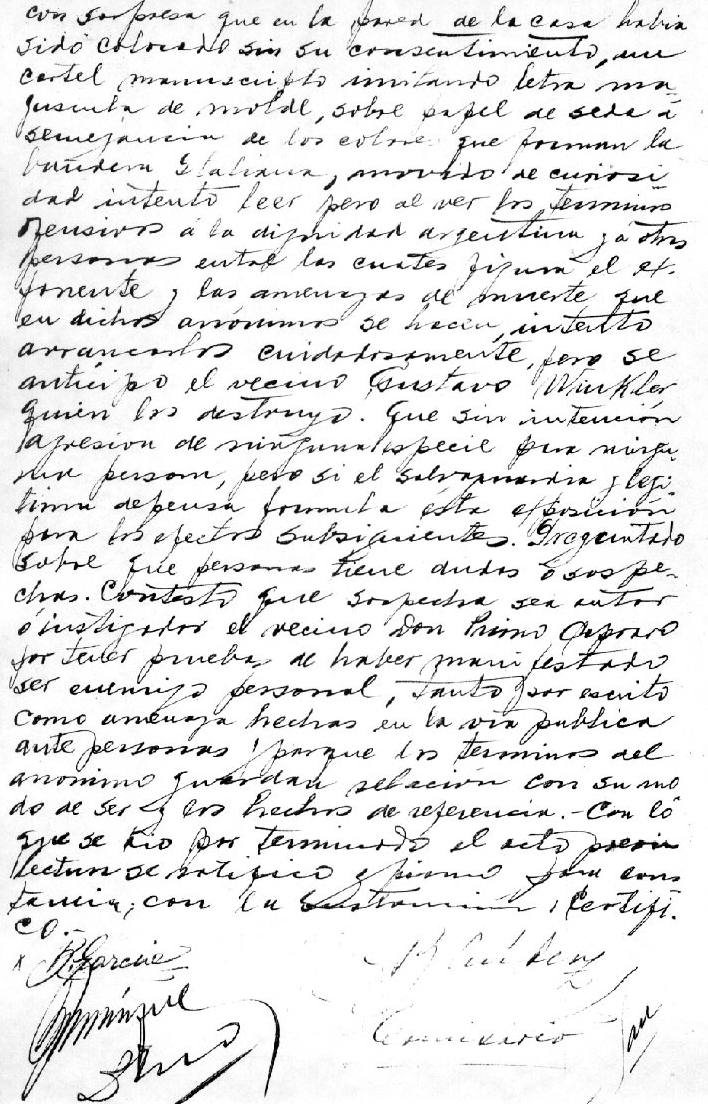 con sorpresa que en la pared de la casa habia
sido colocado sin su consentimiento, un
cartel manuscripto imitando letra ma-
juscula de molde, sobre papel de seda á
semejancia de los colores que forman la
bandera Italiana, movido de curiosi
dad intentó leer pero al ver los terminos
ofensivos á la dignidad argentina y á otras
personas entre las cuales figura el ex-
ponente y las amenazas de muerte que
en dichos anónimos se hacen, intentó
arrancarlos cuidadosamente, pero se
anticipo el vecino Gustavo Winkler
quien los destruyo. Que sin intención
agresion de ninguna especie para ningu
na persona, pero si el salvaguardia y legi
tima defensa formula ésta exposición
para los efectos subsiguientes. Preguntado
sobre que personas tiene dudas ó sospe-
chas. Contestó que sospecha sea autor
ó instigador el vecino Don Primo Capraro
por tener pruebas de haber manifestado
ser enemigo personal, tanto por escrito
como amenaza hechas en la via publica
ante personas y porque los terminos del
anonimo guardan relación con su mo
do de ser y los hechos de referencia.- Con lo
que se dio por terminado el acto previa
lectura se ratificó y firmó para cons
tancia, con la certifi-
co.-
R. Garcia
Comisario